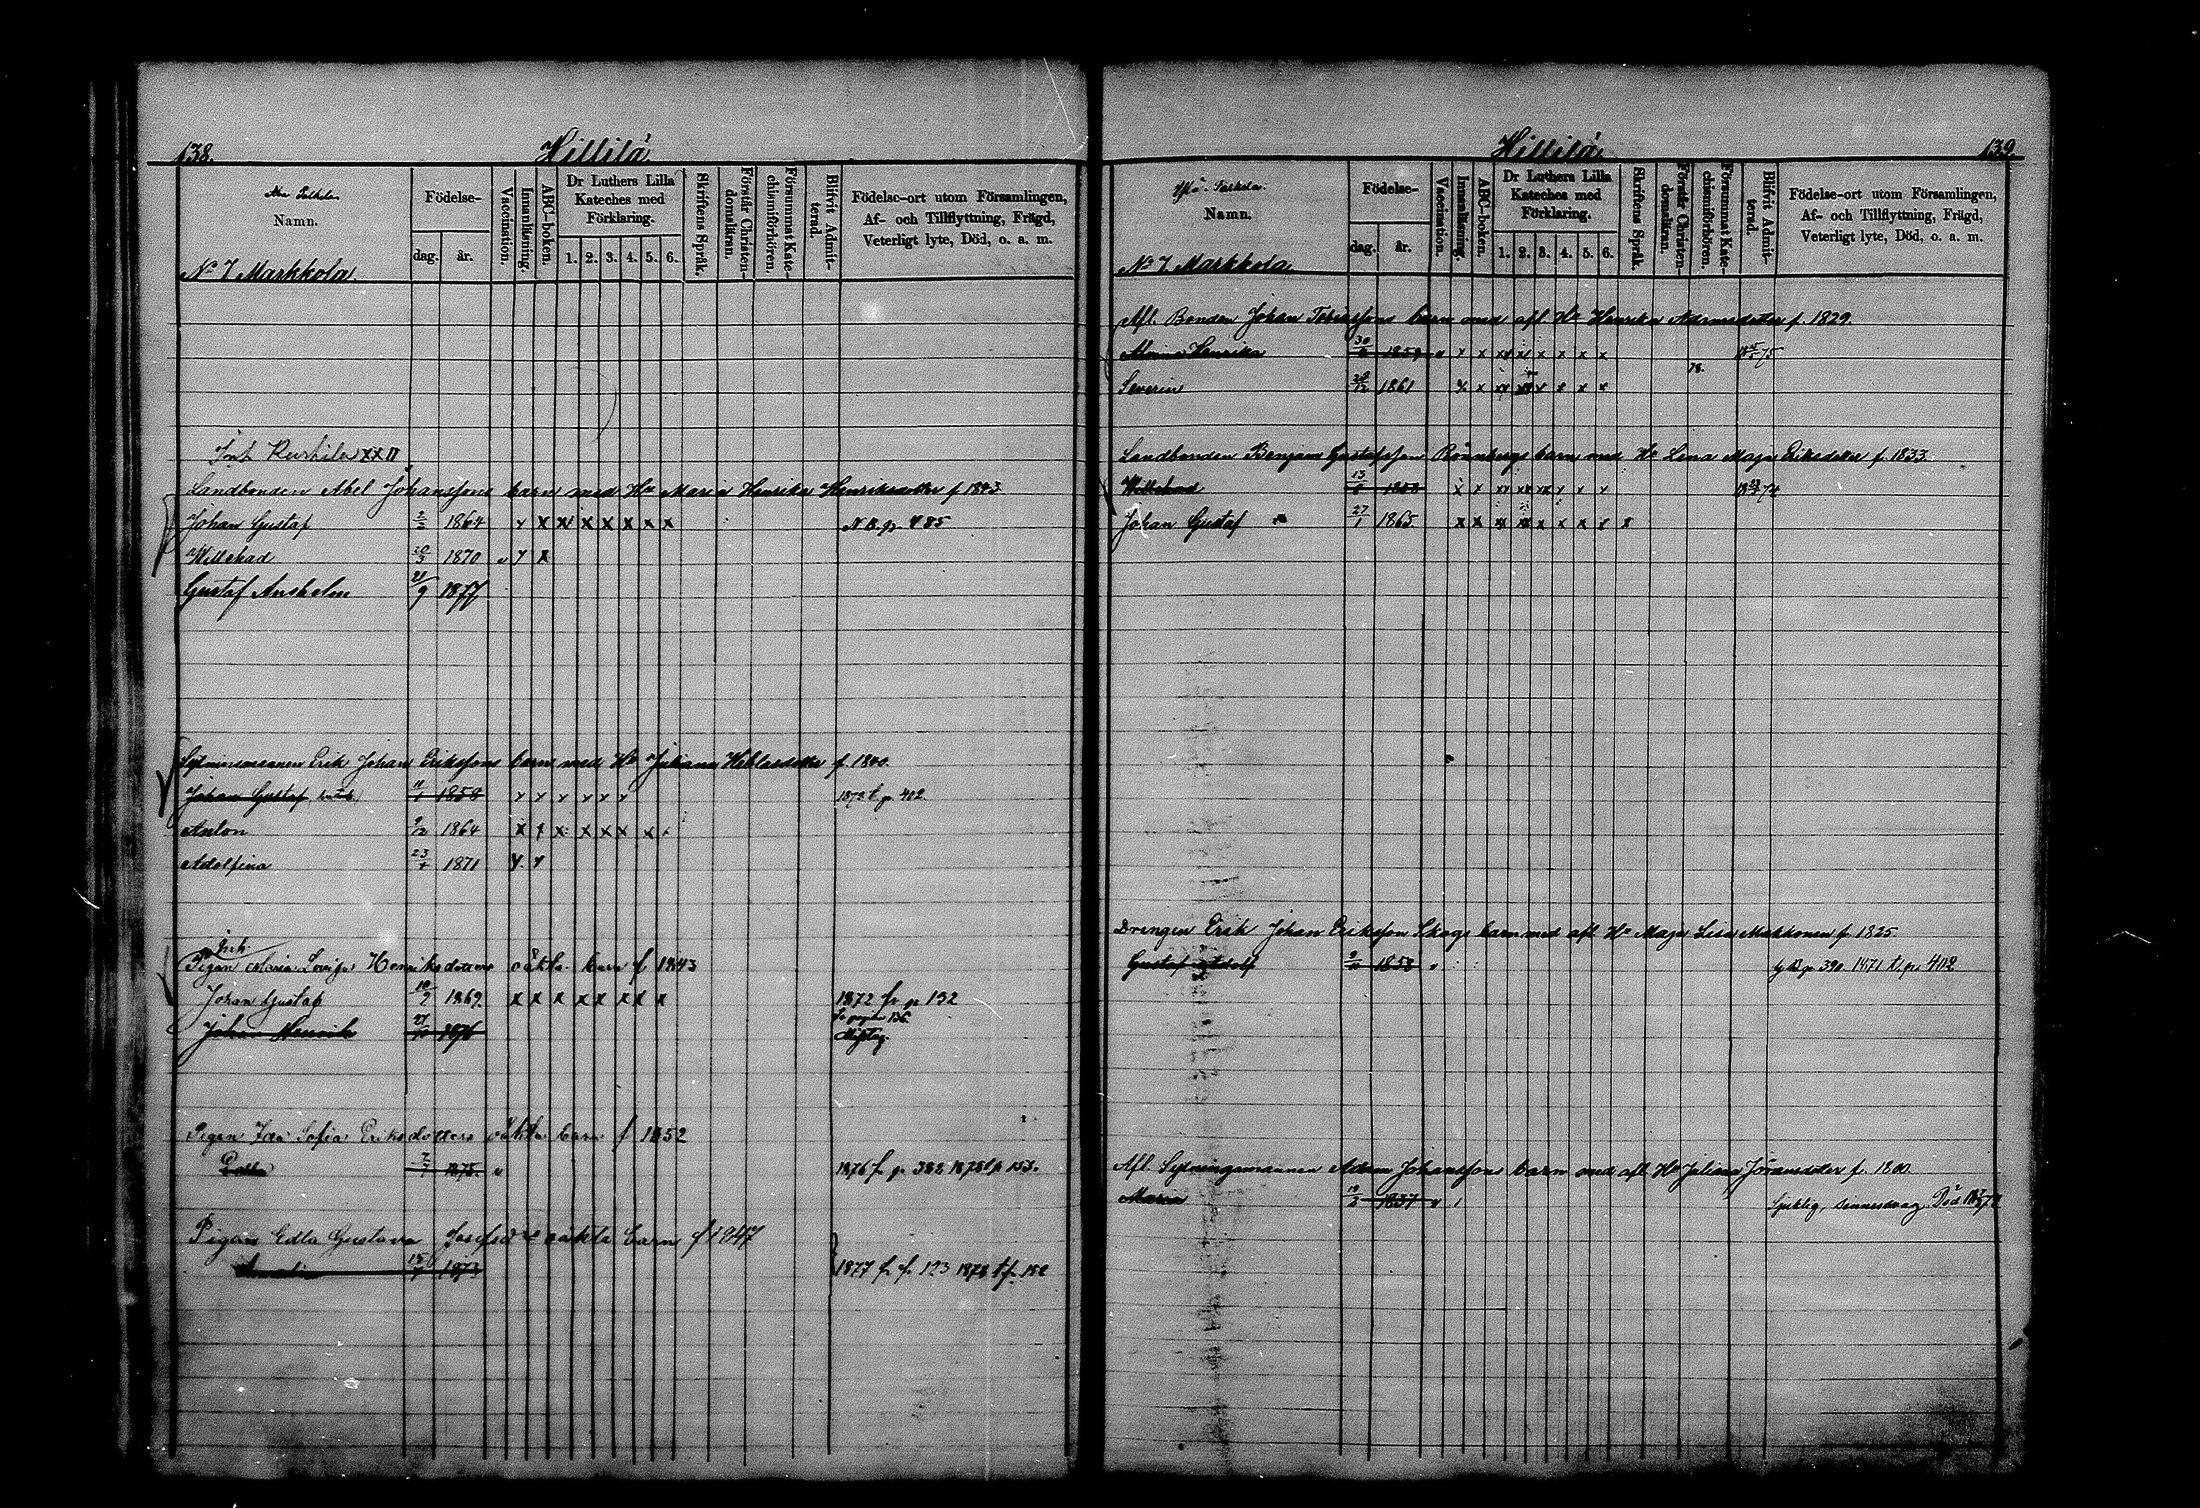 138.
Hillilä
Namn.
Födelse-
dag.
år.
Vaccination.
Innanläsning.
ABC-boken.
Dr Luthers Lilla Kateches med Förklaring.
1. 2. 3. 4. 5. 6.
Skriftens Språk.
Förstår Christendomsläran.
Försummat Katechismiförhören.
Blifvit Admitterad.
Födelse-ort utom Församlingen,
Af- och Tillflyttning, Frägd,
Veterligt lyte, Död, o. a. m.
No 7 Markkola
Landbonden Abel Johanssons barn med Hu Maria Henrika Henriksdotter f 1843
Johan Gustaf 2/2 1864 x x x x x x x x N.B. p. 485
Willehad 20/3 1870 " x x
Gustaf Anshelm 21/9 1877
Sytningsmannen Erik Johan Erikssons barn med Hu Juliana f 1840.
Johan Gustaf 11/1 1858 x x x x x x 1872 t. p. 402.
Anton 9/12 1864 x x x x x x x x
Adolfina 23/1 1871 x x
Inh.
Pigan Maria Lovisa Henriksdotters oäkta barn f 1843
Johan Gustaf 10/9 1869. x x x x x x x x 1872 fr p 132
Johan Henrik 27/10 1876
Pigan Ida Sofia Eriksdotters oäkta barn f 1852
Edla 7/1 1875. " 1876 f. p. 382 1878 t p 153.
Pigan Edla Gustava oäkta barn f 1847
Amalia 15/7 1873 1877 f. p. 123 1878 t p. 152
139.
Hillilä
Namn.
Födelse-
dag.
år.
Vaccination.
Innanläsning.
ABC-boken.
Dr Luthers Lilla Kateches med Förklaring.
1. 2. 3. 4. 5. 6.
Skriftens Språk.
Förstår Christendomsläran.
Försummat Katechismiförhören.
Blifvit Admitterad.
Födelse-ort utom Församlingen,
Af- och Tillflyttning, Frägd,
Veterligt lyte, Död, o. a. m.
No 7 Markkola
Afl. Bonden Johan Tobiassons barn med afl. Hu Henrika Adamsdotter f. 1829.
Henrika 1859 " x x xx xx x x x x
78.
Severin 1861 x x xx x x x x
Landbonden Benjam Gustafsson Rönnbergs barn med Hu Lena Maja Eriksdotter f. 1833.
Willehad 1858 x x xx xx xx x x x
Johan Gustaf 27/1 1865 x x x x x x x x x
Drengen Erik Johan Eriksson Skogs barn med afl Hu Maja Lisa Makkonen f. 1825
Gustaf Adolf 9/10 1858 " p. 390. 1871 t. p. 402
Afl. Sytningsmannen Adam Johanssons barn med afl. Hu Juliana Jöransdotter f. 1800.
Maria 19/2 1837 " Sjuklig, sinnessvag. Död